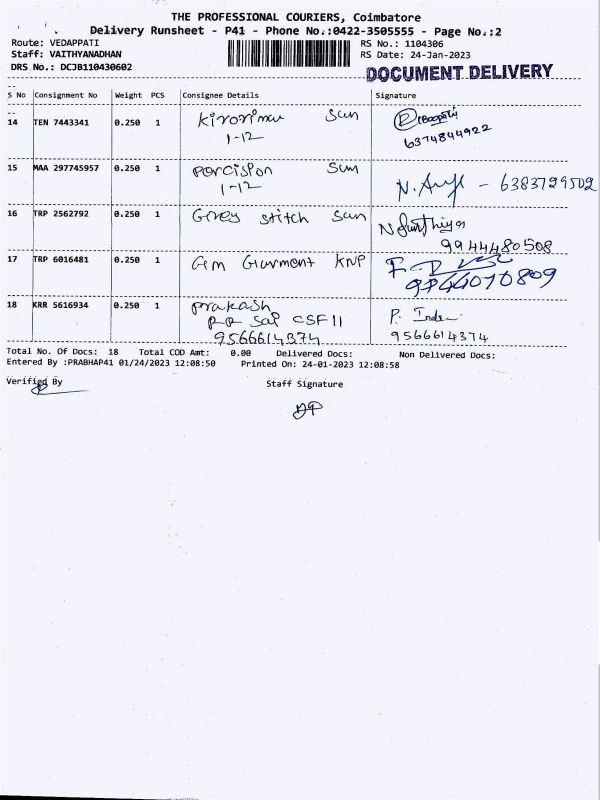 THE PROFESSIONAL COURIERS, Coimbatore
Delivery Runsheet - P41 - Phone No.:0422-3505555 - Page No.:2
Route: VEDAPPATI
Staff: VAITHYANADHAN
DRS No.: DCJB110430602
RS No.: 1104306
RS Date: 24-Jan-2023
DOCUMENT DELIVERY
S No Consignment No Weight PCS Consignee Details Signature
14 TEN 7443341 0.250 1
1-12
6374844922
15 MAA 297745957 0.250 1
1-12
- 6383729502
16 TRP 2562792 0.250 1 Grey stitch
9944480508
17 TRP 6016481 0.250 1 Gm Garment KNP
9744070809
18 KRR 5616934 0.250 1 prakash
CSF11 P.
9566614374 9566614374
Total No. Of Docs: 18 Total COD Amt: 0.00 Delivered Docs: Non Delivered Docs:
Entered By :PRABHAP41 01/24/2023 12:08:50 Printed On: 24-01-2023 12:08:58
Verified By Staff Signature